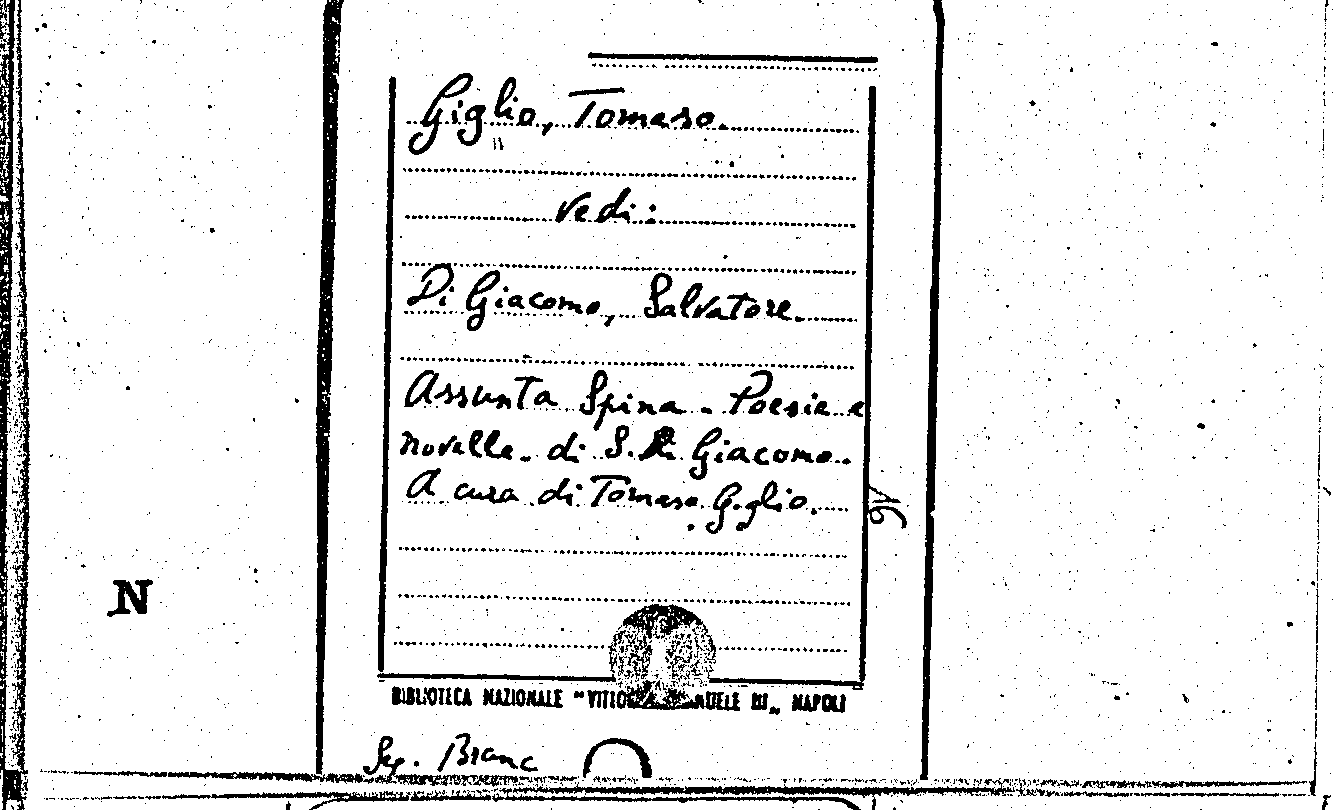 Giglio, Tomaso.
vedi:
Di Giacomo, Salvatore.
Assunta Spina. Poesie e
novelle. di S. Di Giacomo.
A cura di Tomaso Giglio.
N
BIBLIOTECA NAZIONALE "VITTORIO EMANUELE III„ NAPOLI